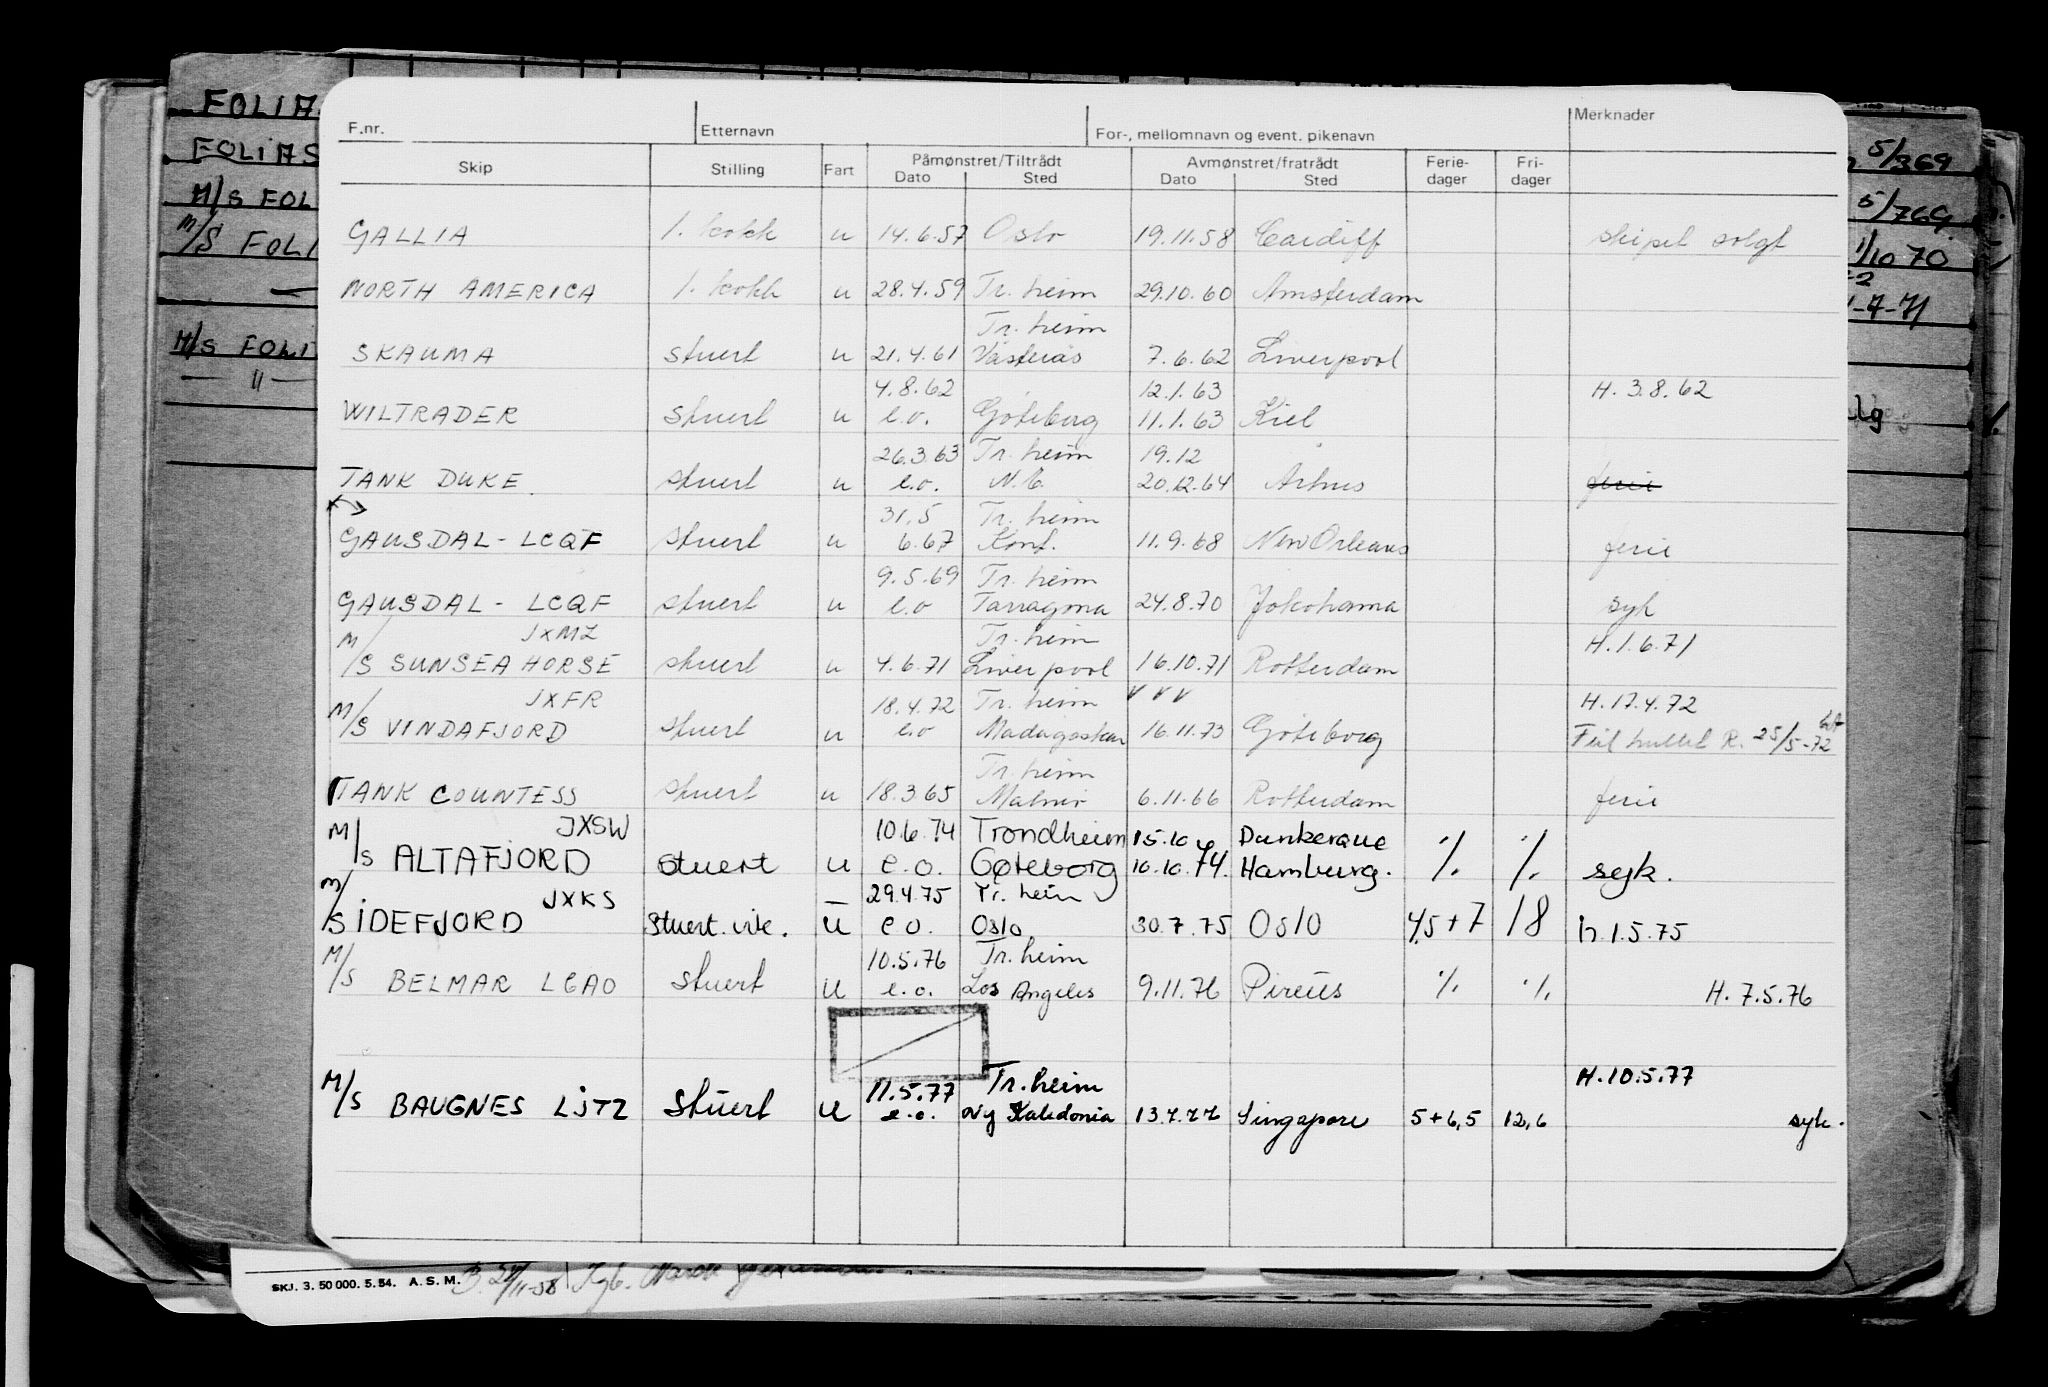 F.nr. Etternavn For-, mellomnavn og event. pikenavn Merknader
Skip Stilling Fart Påmønstret/Tiltrådt Avmønstret/fratrådt Ferie- Fri-
Dato Sted Dato Sted dager dager
GALLIA 1. kokk u 14.6.57 Oslo 19.11.58 Cardiff skipet solgt
NORTH AMERICA 1. kokk u 28.4.59 Tr. heim 29.10.60 Amsterdam
Tr. heim
SKAUMA stuert u 21.4.61 Västerås 7.6.62 Liverpool
4.8.62 12.1.63 H. 3.8.62
WILTRADER stuert u e.o. Göteborg 11.1.63 Kiel
26.3.63 Tr. heim 19.12
TANK DUKE. stuert u e.o. N.C. 20.12.64 Århus ferie
31.5 Tr. heim
GAUSDAL - LCQF stuert u 6.67 Kont. 11.9.68 New Orleans ferie
9.5.69 Tr. heim
GAUSDAL - LCQF stuert u e.o Tarragona 24.8.70 Jokohama syk
JXMZ Tr. heim H.1.6.71
M/S SUNSEA HORSE stuert u 4.6.71 Liverpool 16.10.71 Rotterdam
JXFR 18.4.72 Tr. heim v v v H.17.4.72
M/S VINDAFJORD stuert u e.o Madagaskar 16.11.73 Göteborg Feil R. 25/5-72
Tr. heim
TANK COUNTESS stuert u 18.3.65 Malmö 6.11.66 Rotterdam ferie
JXSW 10.6.74 Trondheim 15.10 Dunkerque
M/S ALTAFJORD stuert u e.o. Gøteborg 10.10.74. Hamburg. % % syk.
JXKS 29.4.75 Tr. heim
M/S IDEFJORD Stuert. vik. u e o. Oslo 30.7.75 Oslo 4,5+7 18 h.1.5.75
10.5.76 Tr. heim
M/S BELMAR LGAO Stuert u e.o. Los Angeles 9.11.76 Pireus % % H. 7.5.76
11.5.77 Tr. heim H.10.5.77
M/S BAUGNES LJTZ Stuert u e.o. Ny Kaledonia 13.7.77 Singapore 5+6,5 12,6 syk.
FOLIA
FOLIAS
M/S FOL
M/S FOLI
M/S FOLI
— " —
5/369
5/769
1/10 70
-7-71
SKJ. 3. 50 000. 5. 54. A. S. M. B. 24/11-58